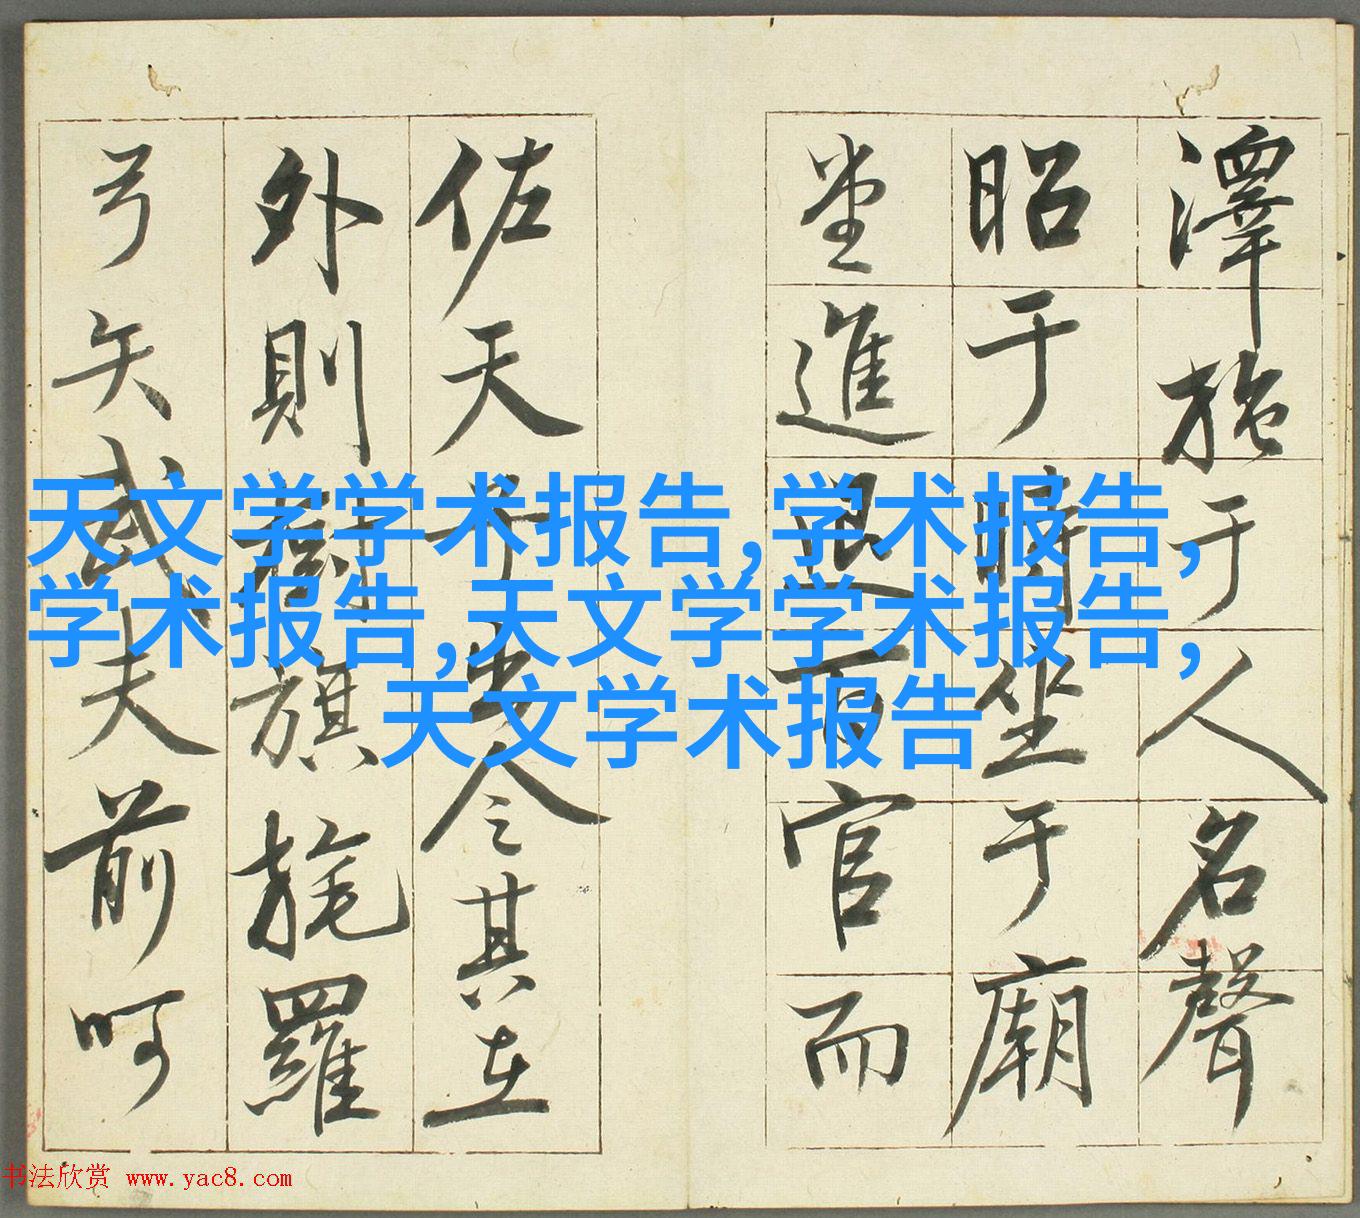 澤施于人名聲
昭于時坐于廟
堂進退百官而
佐天子出令其在
外則樹旗旄羅
弓矢武夫前呵
天文学学术报告,学术报告,
学术报告,天文学学术报告,
天文学术报告
书法欣赏 www.yac8.com